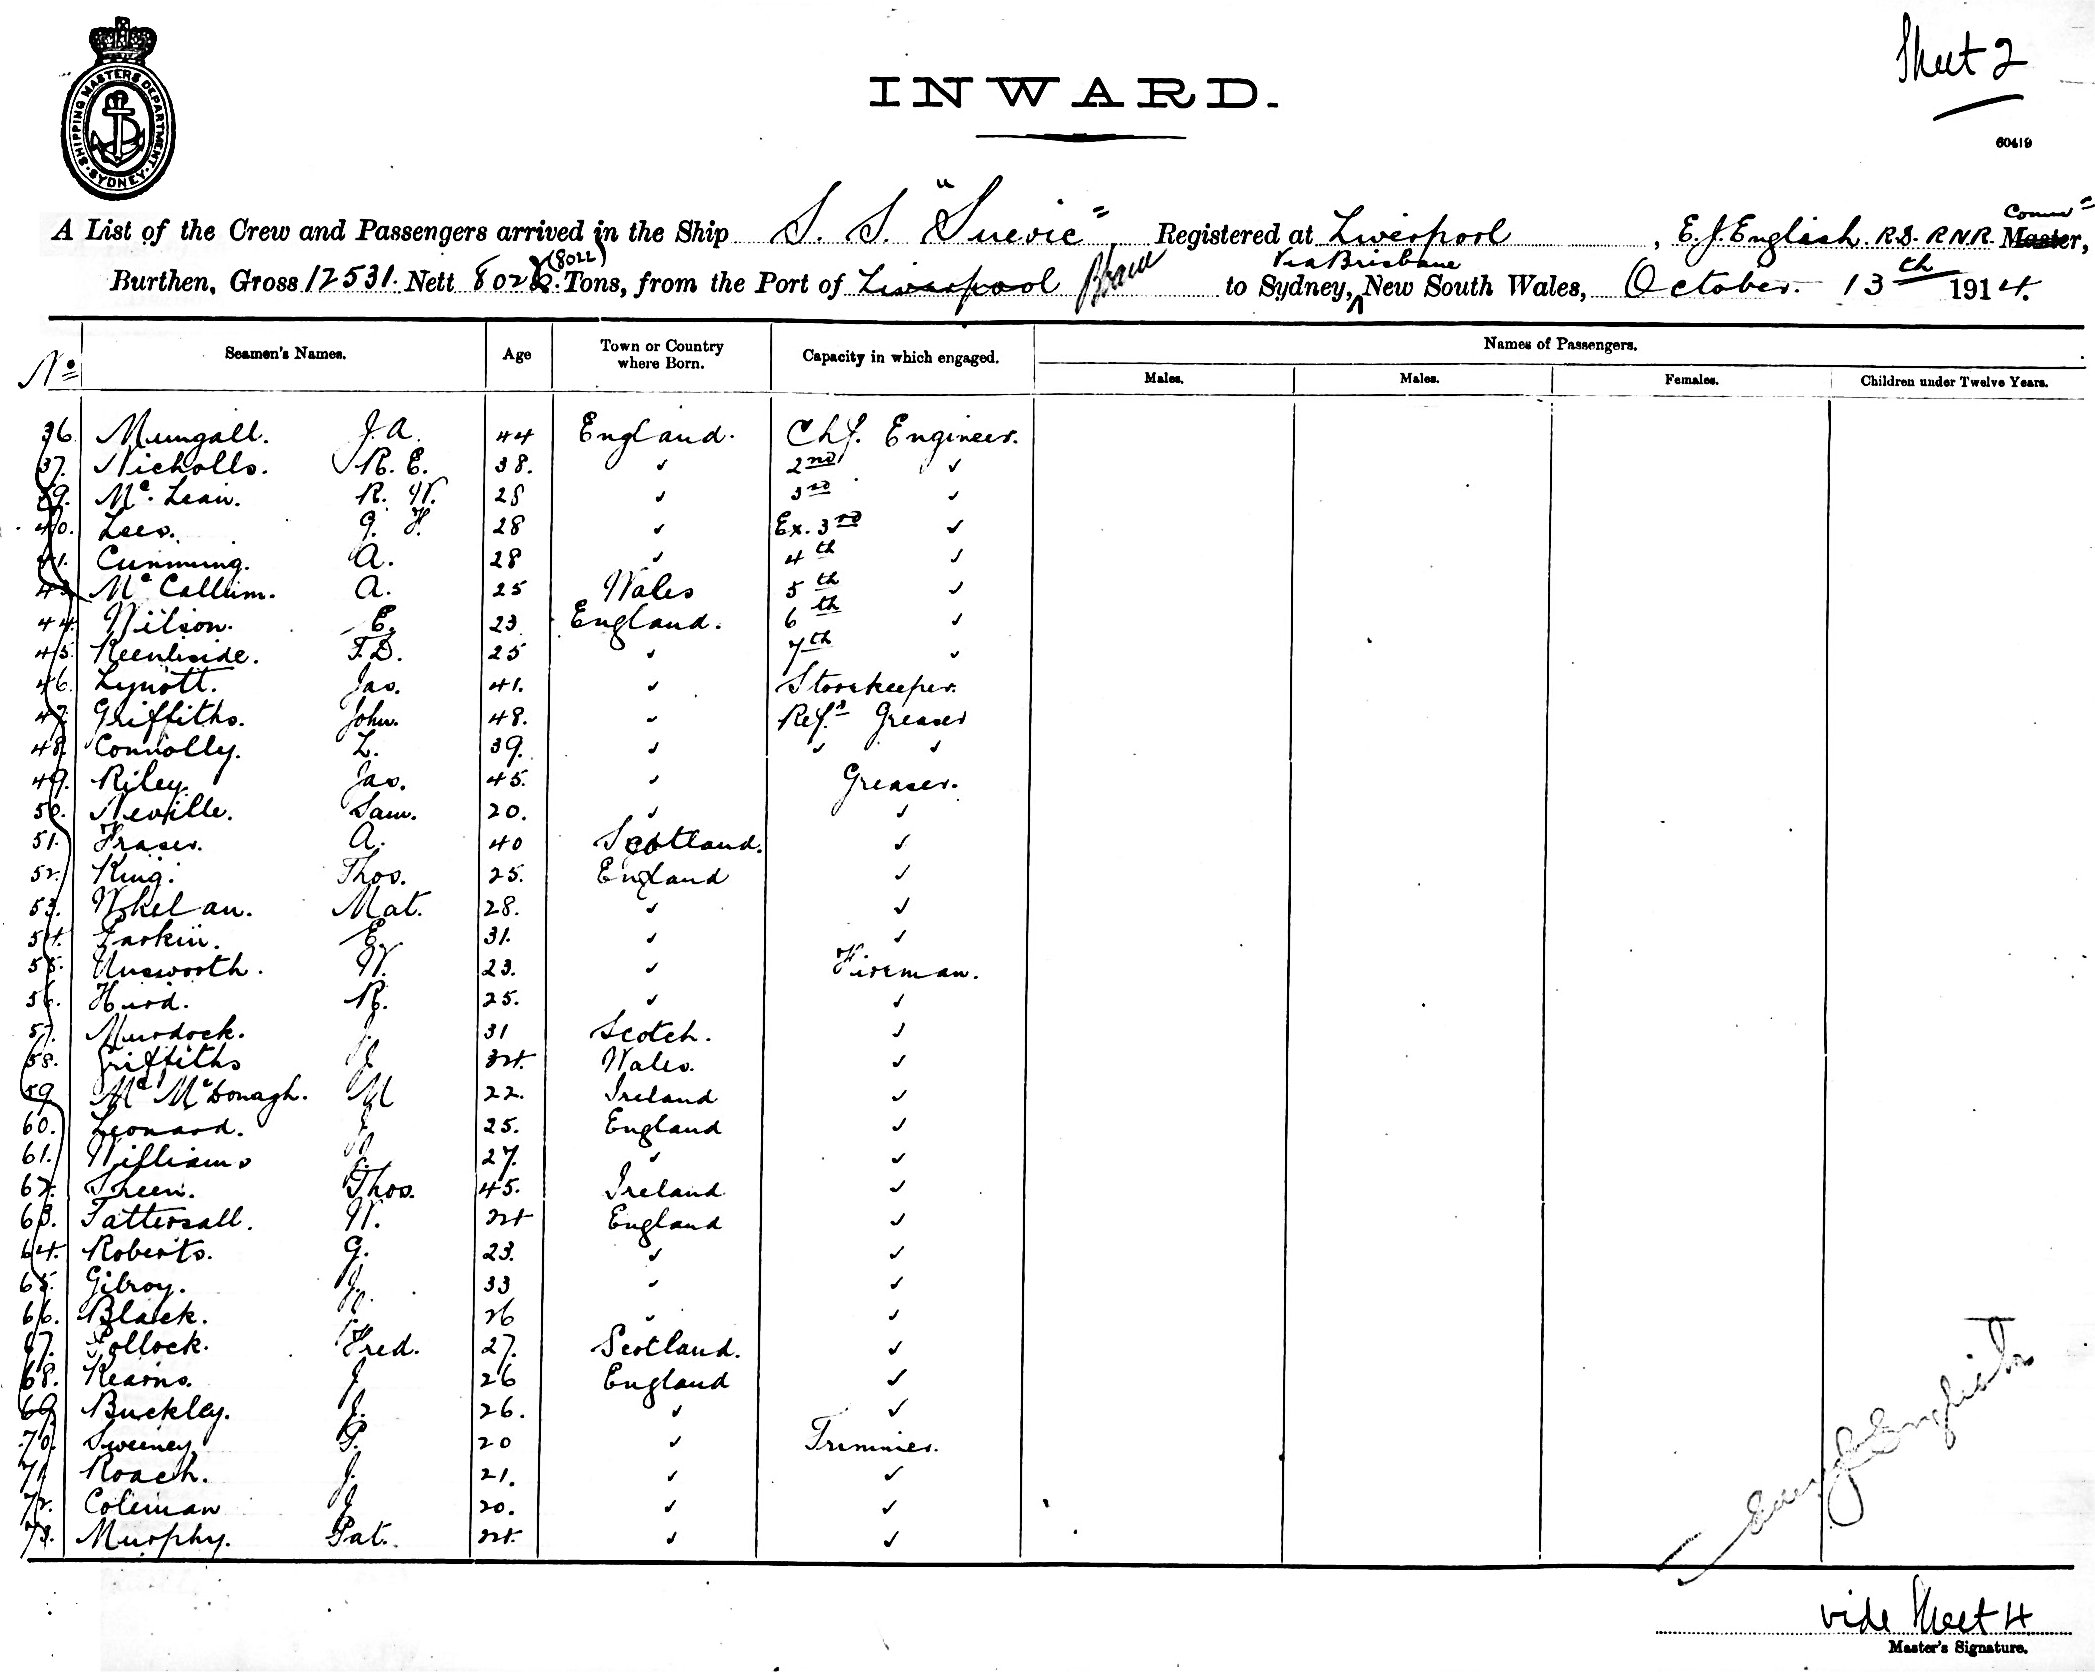 SHIPPING MASTERS DEPARTMENT · SYDNEY ·
Sheet 2
INWARD.
60419
A List of the Crew and Passengers arrived in the Ship S. S. "Suevic", Registered at Liverpool, E. J. English. R.D. R.N.R. Comm= Master,
(8022) Via Brisbane
Burthen, Gross 12531. Nett 802 Tons, from the Port of Liverpool to Sydney, New South Wales, October. 13th 1914.
No Seamen's Names. Age Town or Country where Born. Capacity in which engaged. Names of Passengers.
Males. Males. Females. Children under Twelve Years.
36. Mungall. J. A. 44 England. Chf. Engineer.
37. Nicholls. R. E. 38. " 2nd "
39. Mc. Lean. R. W. 28 " 3rd "
40. Lees. G. H. 28 " Ex. 3rd "
41. Cumming. A. 28 " 4th "
43. Mc Callum. A. 25 Wales 5th "
44. Wilson. E. 23 England. 6th "
45. Keenliside. F. D. 25 " 7th "
46. Lynott. Jas. 41. " Storekeeper.
47. Griffiths. John. 48. " Ref.r Greaser
48. Connolly. L. 39. " " "
49. Riley. Jas. 45. " Greaser.
50. Neville. Sam. 20. " "
51. Fraser. A. 40 Scotland. "
52. King. Thos. 25. England "
53. Whelan. Mat. 28. " "
54. Larkin. E. 31. " "
55. Unsworth. W. 23. " Fireman.
56. Hurd. R. 25. " "
57. Murdock. J. 31 Scotch. "
58. Griffiths J. 34. Wales. "
59 Mc McDonagh. M 22. Ireland "
60. Leonard. J. 25. England "
61. Williams 27. " "
62. Sheen. Thos. 45. Ireland "
63. Tattersall. W. 24 England "
64. Roberts. G. 23. " "
65. Gilroy. J. 33 " "
66. Black. 26 " "
67. Pollock. Fred. 27. Scotland. "
68. Kearns. J 26 England "
69 Buckley. J. 26. " "
70. Sweeney. P. 20 " Trimmer.
71 Roach. J. 21. " "
72. Coleman J 20. " "
73. Murphy. Pat. 24. " "
English
vide Sheet 4
Master's Signature.